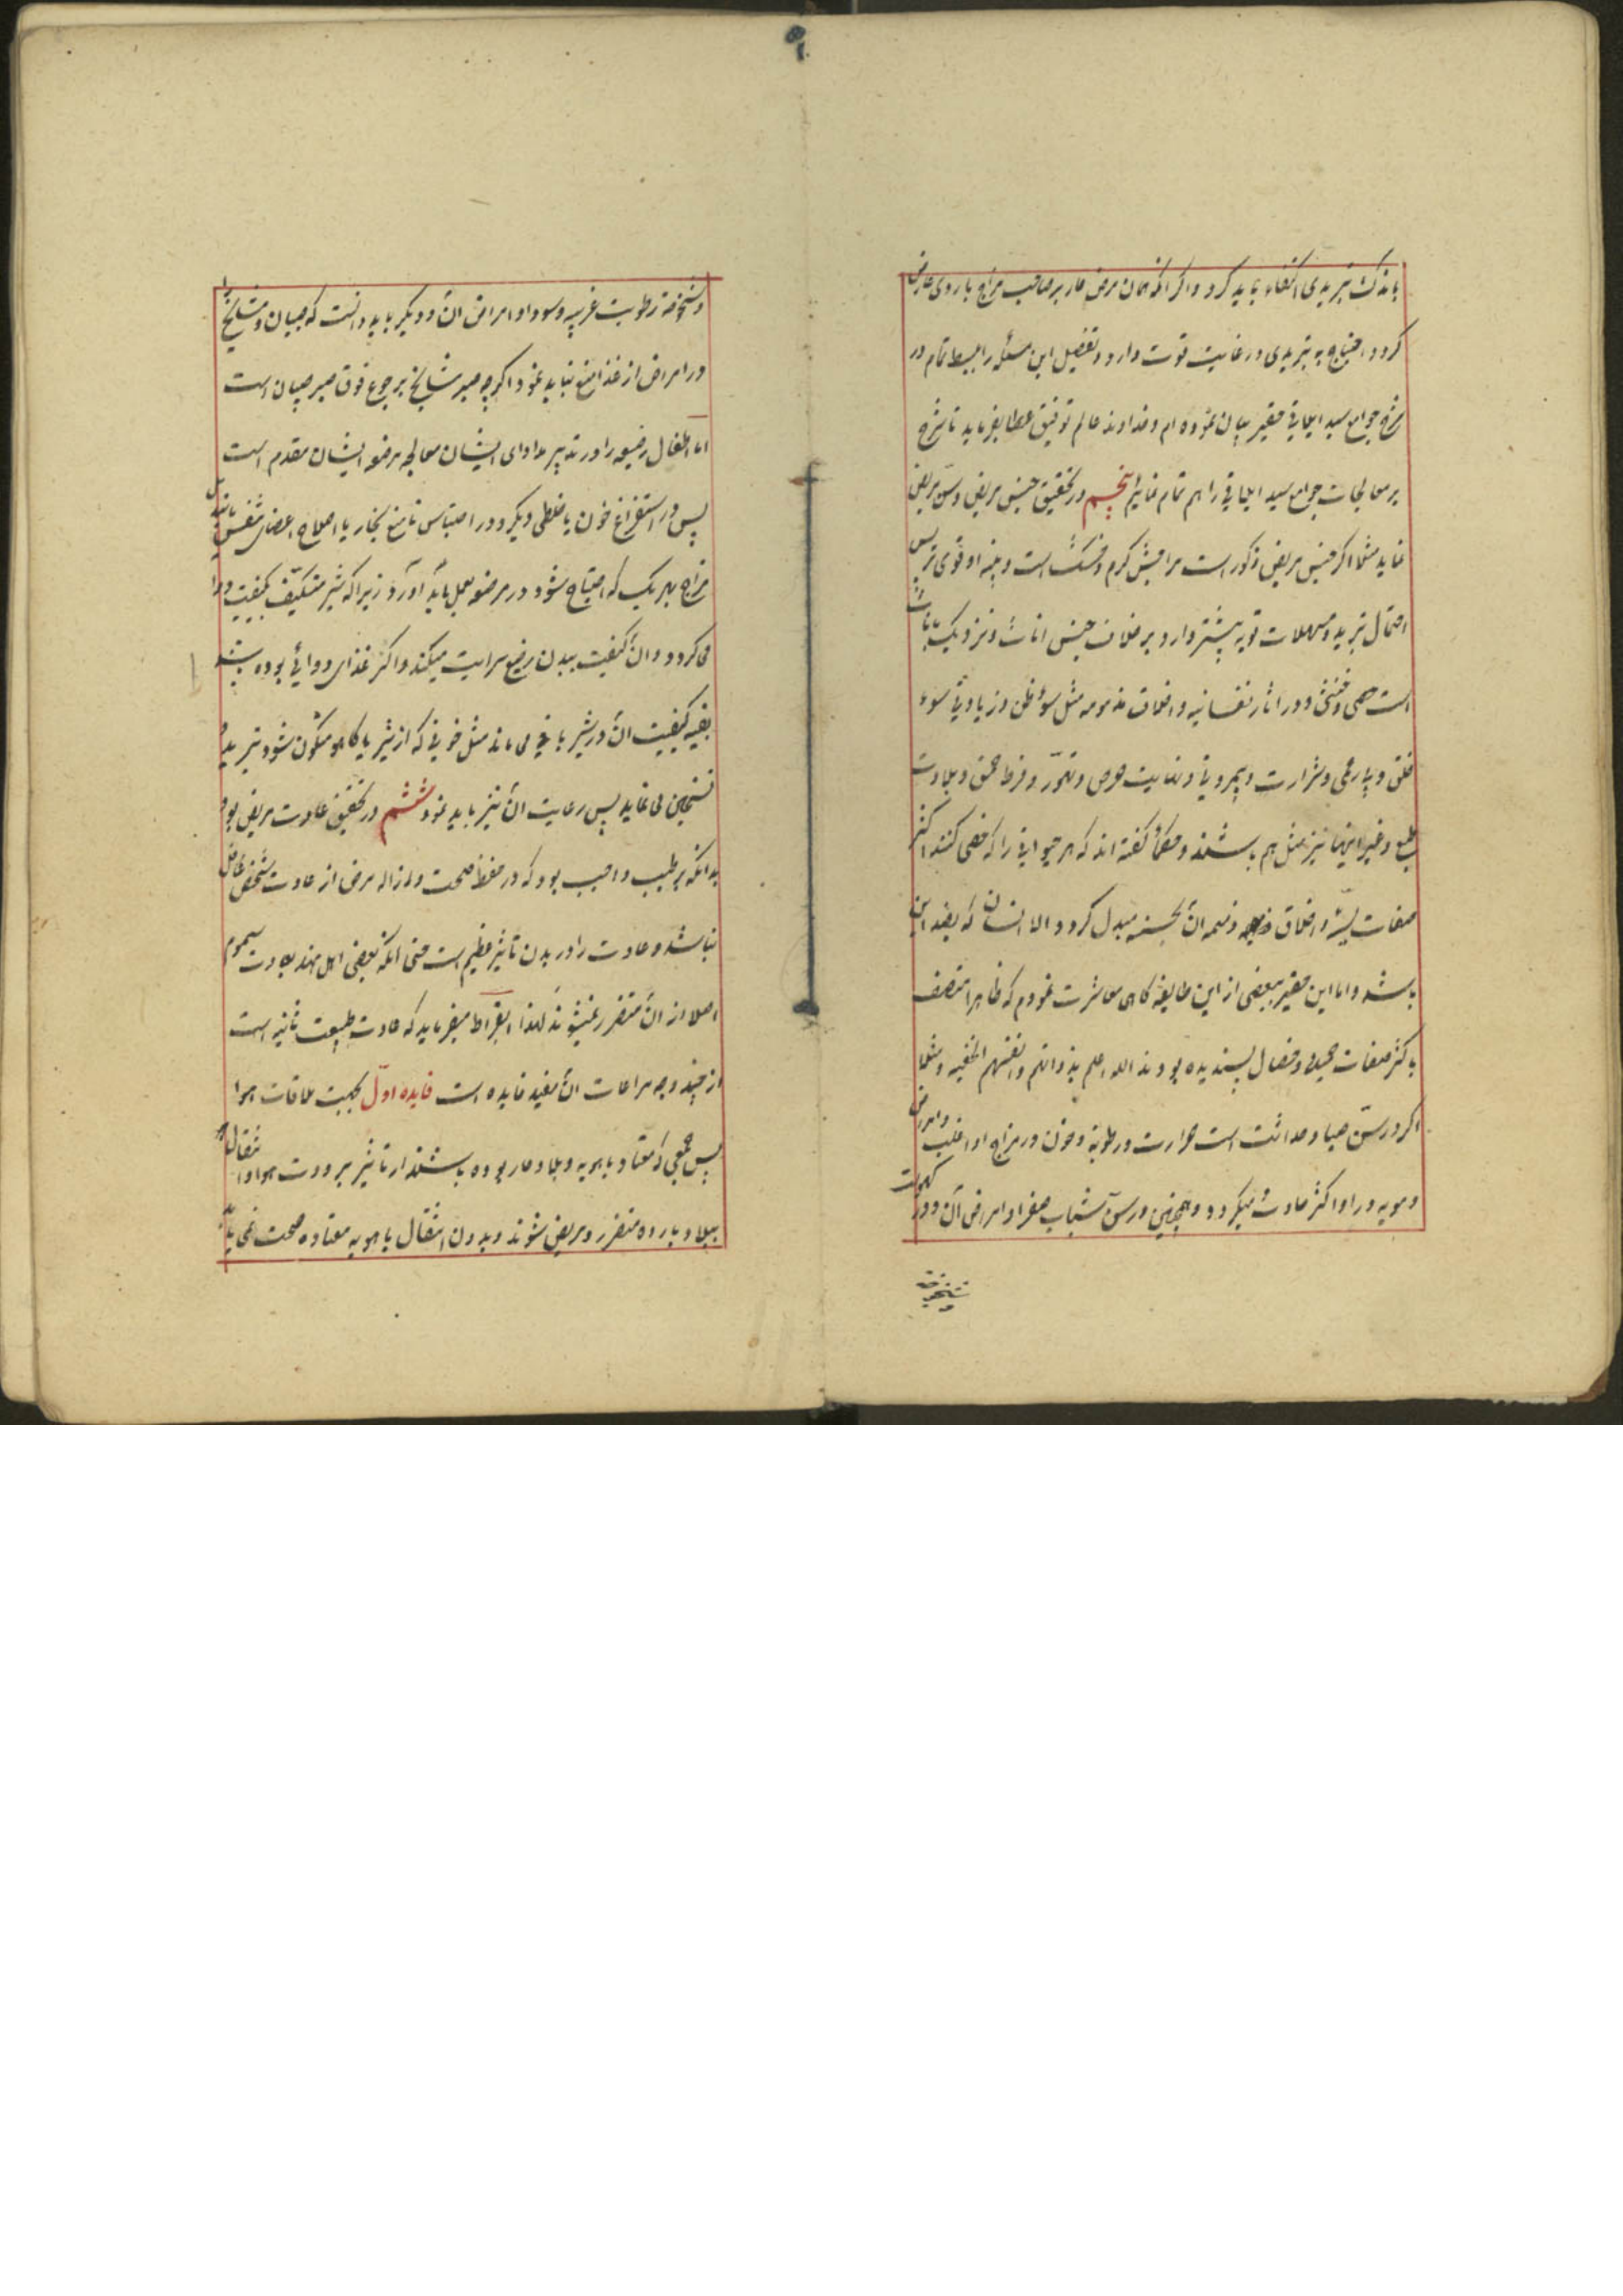 باندک تبریدی اکتفاء باید کرد و اگر آنکه همان مرض حار بر صاحب مزاج باردی عارض
کردد احتیاج به تبریدی در غایت قوت دارد و تفصیل این مسئله را بسیط تمام در
شرح جوامع سید ایجابی حقیر بیان نموده ام و خداوند عالم توفیق عطا بفرماید تا شرح
بر معالجات جوامع سید را هم تمام نمایم پنجم در تحقیق جنس مریض و سن مریض
نماید مثلا اکر جنس مریض ذکور است مزاجش کرم و خشک است و بنیه او قوی تر پس
احتمال تبرید و مسهلات قویه بیشتر دارد بر خلاف جنس اناث و نزدیک باناث
است خصی و خنثی و در اثار نفسانیه و اخلاق مذمومه مثل سوء ظن و زیادتی سوء
خلق و بیارحمی و شرارت و بیمروتی و نهایت حرص و تهور و فرط حمق و بلادت
طبع و غیر اینها نیز مثل هم باشند و حکما گفته اند که هر حیوانی را که خصی کنند اکثر
صفات سیئه و اخلاق ذمیمه آن بحسنه مبدل کردد الا انسان که بضد این
باشد و اما این حقیر ببعضی از این طایفه کاهی معاشرت نمودم که ظاهرا متصف
باکثر صفات حمیده و خصال پسندیده بودند الله اعلم بذواتهم و انفسهم الخفیه و مثلا
اکر در سن صبا و حداثت است حرارت و رطوبة و خون در مزاج او اغلب و امراض
دمویه در او اکثر حادث میکردد و همچنین در سن شباب صفرا و امراض آن و در کهولت
و شیخوخة
و شیخوخة رطوبت غریبه و سودا و امراض ان و دیکر باید دانست که صبیان و مشایخ را
در امراض از غذا منع نباید نمود اکرچه صبر مشایخ بر جوع فوق صبر صبیان است
اما اطفال رضیعه را در تدبیر مداوای ایشان معالجه مرضعه ایشان مقدم است
پس در استفراغ خون یا خلطی دیکر و در احتباس یا منع بخار یا اصلاح اعضای تنفس یا تبدیل
مزاج بهر یک که احتیاج شود در مرضعه بعمل باید آورد زیرا که شیر متکیف بکیفیت دوا
می کردد و ان کیفیت ببدن رضیع سرایت میکند و اکثر غذای دوائی بوده باشد
بقیه کیفیت ان در شیر باقی می ماند مثل خونی که از شیر یا کاهو متکون شود تبرید و
تسخین می نماید پس رعایت ان نیز باید نمود ششم در تحقیق عادت مریض بود
بدانکه بر طبیب واجب بود که در حفظ صحت و ازاله مرض از عادت شخص غافل
نباشد و عادت را در بدن تاثیر عظیم است حتی آنکه بعضی اهل هند بعادت بسموم
اصلا از ان متضرر نمیشوند لهذا ابقراط میفرماید که عادت طبیعت ثانیه است
از چند وجه مراعات ان مفید فایده است فایده اول بجهت ملاقات هوا
پس جمعی که معتاد باهویه و بلاد حار بوده باشند از تاثیر برودت هوا و انتقال
ببلاد بارده متضرر و مریض شوند و بدون انتقال باهویه معتاده صحت نمی یابند